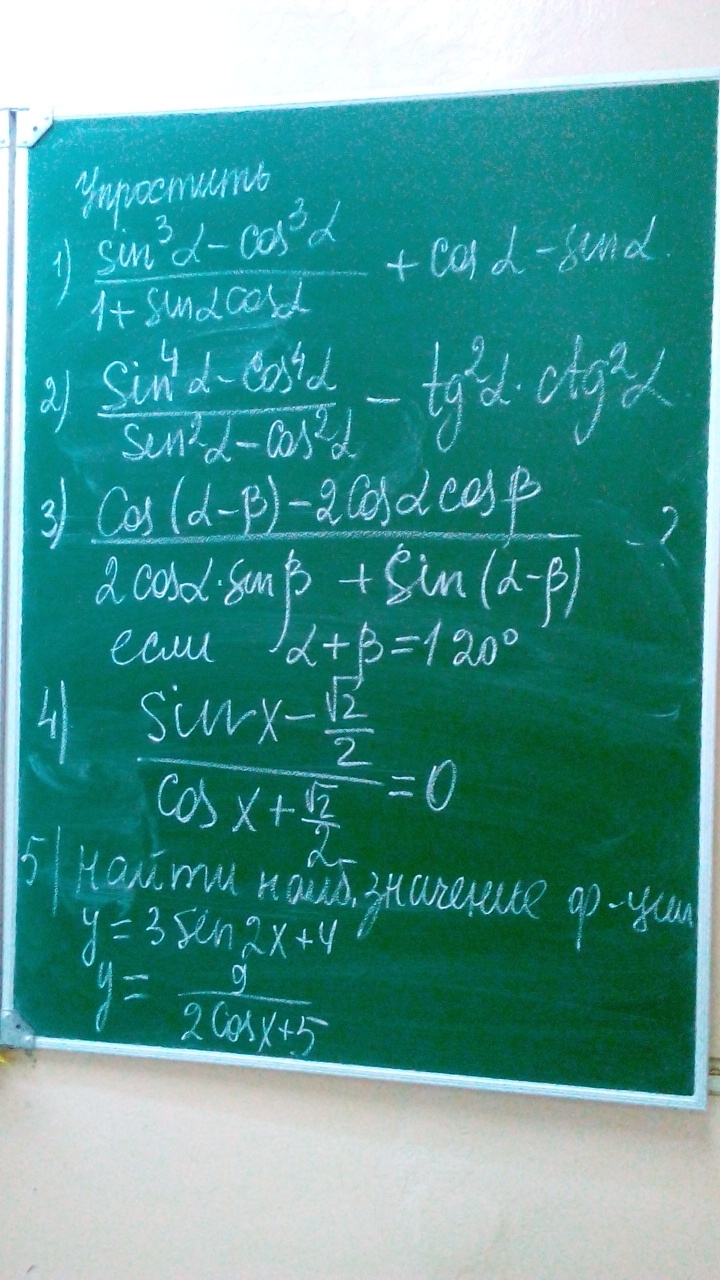 Упростить
1) \frac{sin^3 α - cos^3 α}{1 + sin α cos α} + cos α - sin α.
2) \frac{sin^4 α - cos^4 α}{sin^2 α - cos^2 α} - tg^2 α · ctg^2 α
3) \frac{cos (α-β) - 2 cos α cos β}{2 cos α · sin β + sin (α-β)} - ?
если α + β = 120°
4) \frac{sin x - \frac{√2}{2}}{cos x + \frac{√2}{2}} = 0
5) Найти наиб. значение ф-ции
y = 3 sin 2x + 4
y = \frac{9}{2 cos x + 5}